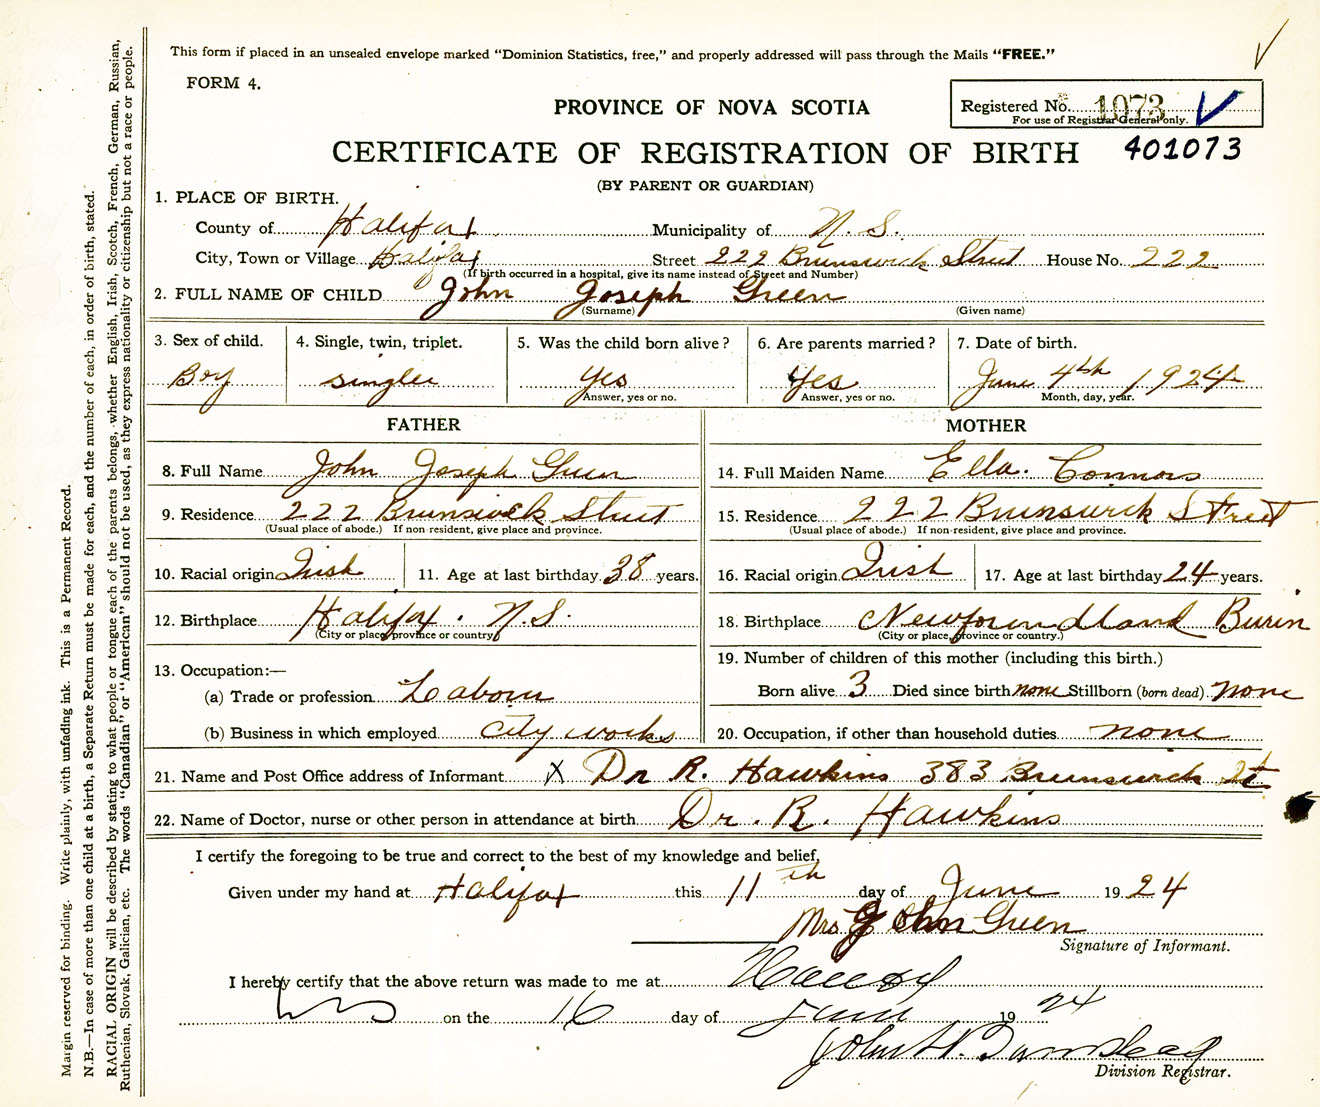 This form if placed in an unsealed envelope marked “Dominion Statistics, free,” and properly addressed will pass through the Mails “FREE.”
FORM 4.
PROVINCE OF NOVA SCOTIA
Registered No. 1073
For use of Registrar General only.
CERTIFICATE OF REGISTRATION OF BIRTH 401073
(BY PARENT OR GUARDIAN)
1. PLACE OF BIRTH.
County of Halifax Municipality of N. S.
City, Town or Village Halifax Street 222 Brunswick Street House No. 222
(If birth occurred in a hospital, give its name instead of Street and Number)
2. FULL NAME OF CHILD John Joseph Green
(Surname) (Given name)
3. Sex of child. 4. Single, twin, triplet. 5. Was the child born alive? 6. Are parents married? 7. Date of birth.
Boy single yes Yes June 4th 1924
Answer, yes or no. Answer, yes or no. Month, day, year.
FATHER MOTHER
8. Full Name John Joseph Green 14. Full Maiden Name Ella Connors
9. Residence 222 Brunswick Street 15. Residence 222 Brunswick Street
(Usual place of abode.) If non-resident, give place and province. (Usual place of abode.) If non-resident, give place and province.
10. Racial origin Irish 11. Age at last birthday 38 years. 16. Racial origin Irish 17. Age at last birthday 24 years.
12. Birthplace Halifax. N.S. 18. Birthplace Newfoundland Burin
(City or place, province or country) (City or place, province or country.)
13. Occupation:— 19. Number of children of this mother (including this birth.)
(a) Trade or profession Labour Born alive 3 Died since birth none Stillborn (born dead) none
(b) Business in which employed City works 20. Occupation, if other than household duties none
21. Name and Post Office address of Informant X Dr R. Hawkins 383 Brunswick St
22. Name of Doctor, nurse or other person in attendance at birth Dr. R. Hawkins
I certify the foregoing to be true and correct to the best of my knowledge and belief,
Given under my hand at Halifax this 11th day of June 1924
Mrs John Green
Signature of Informant.
I hereby certify that the above return was made to me at
on the 16 day of June 1924
John H.
Division Registrar.
Margin reserved for binding. Write plainly, with unfading ink. This is a Permanent Record.
N.B.—In case of more than one child at a birth, a Separate Return must be made for each, and the number of each, in order of birth, stated.
RACIAL ORIGIN will be described by stating to what people or tongue each of the parents belongs, whether English, Irish, Scotch, French, German, Russian,
Ruthenian, Slovak, Galician, etc. The words “Canadian” or “American” should not be used, as they express nationality or citizenship but not a race or people.